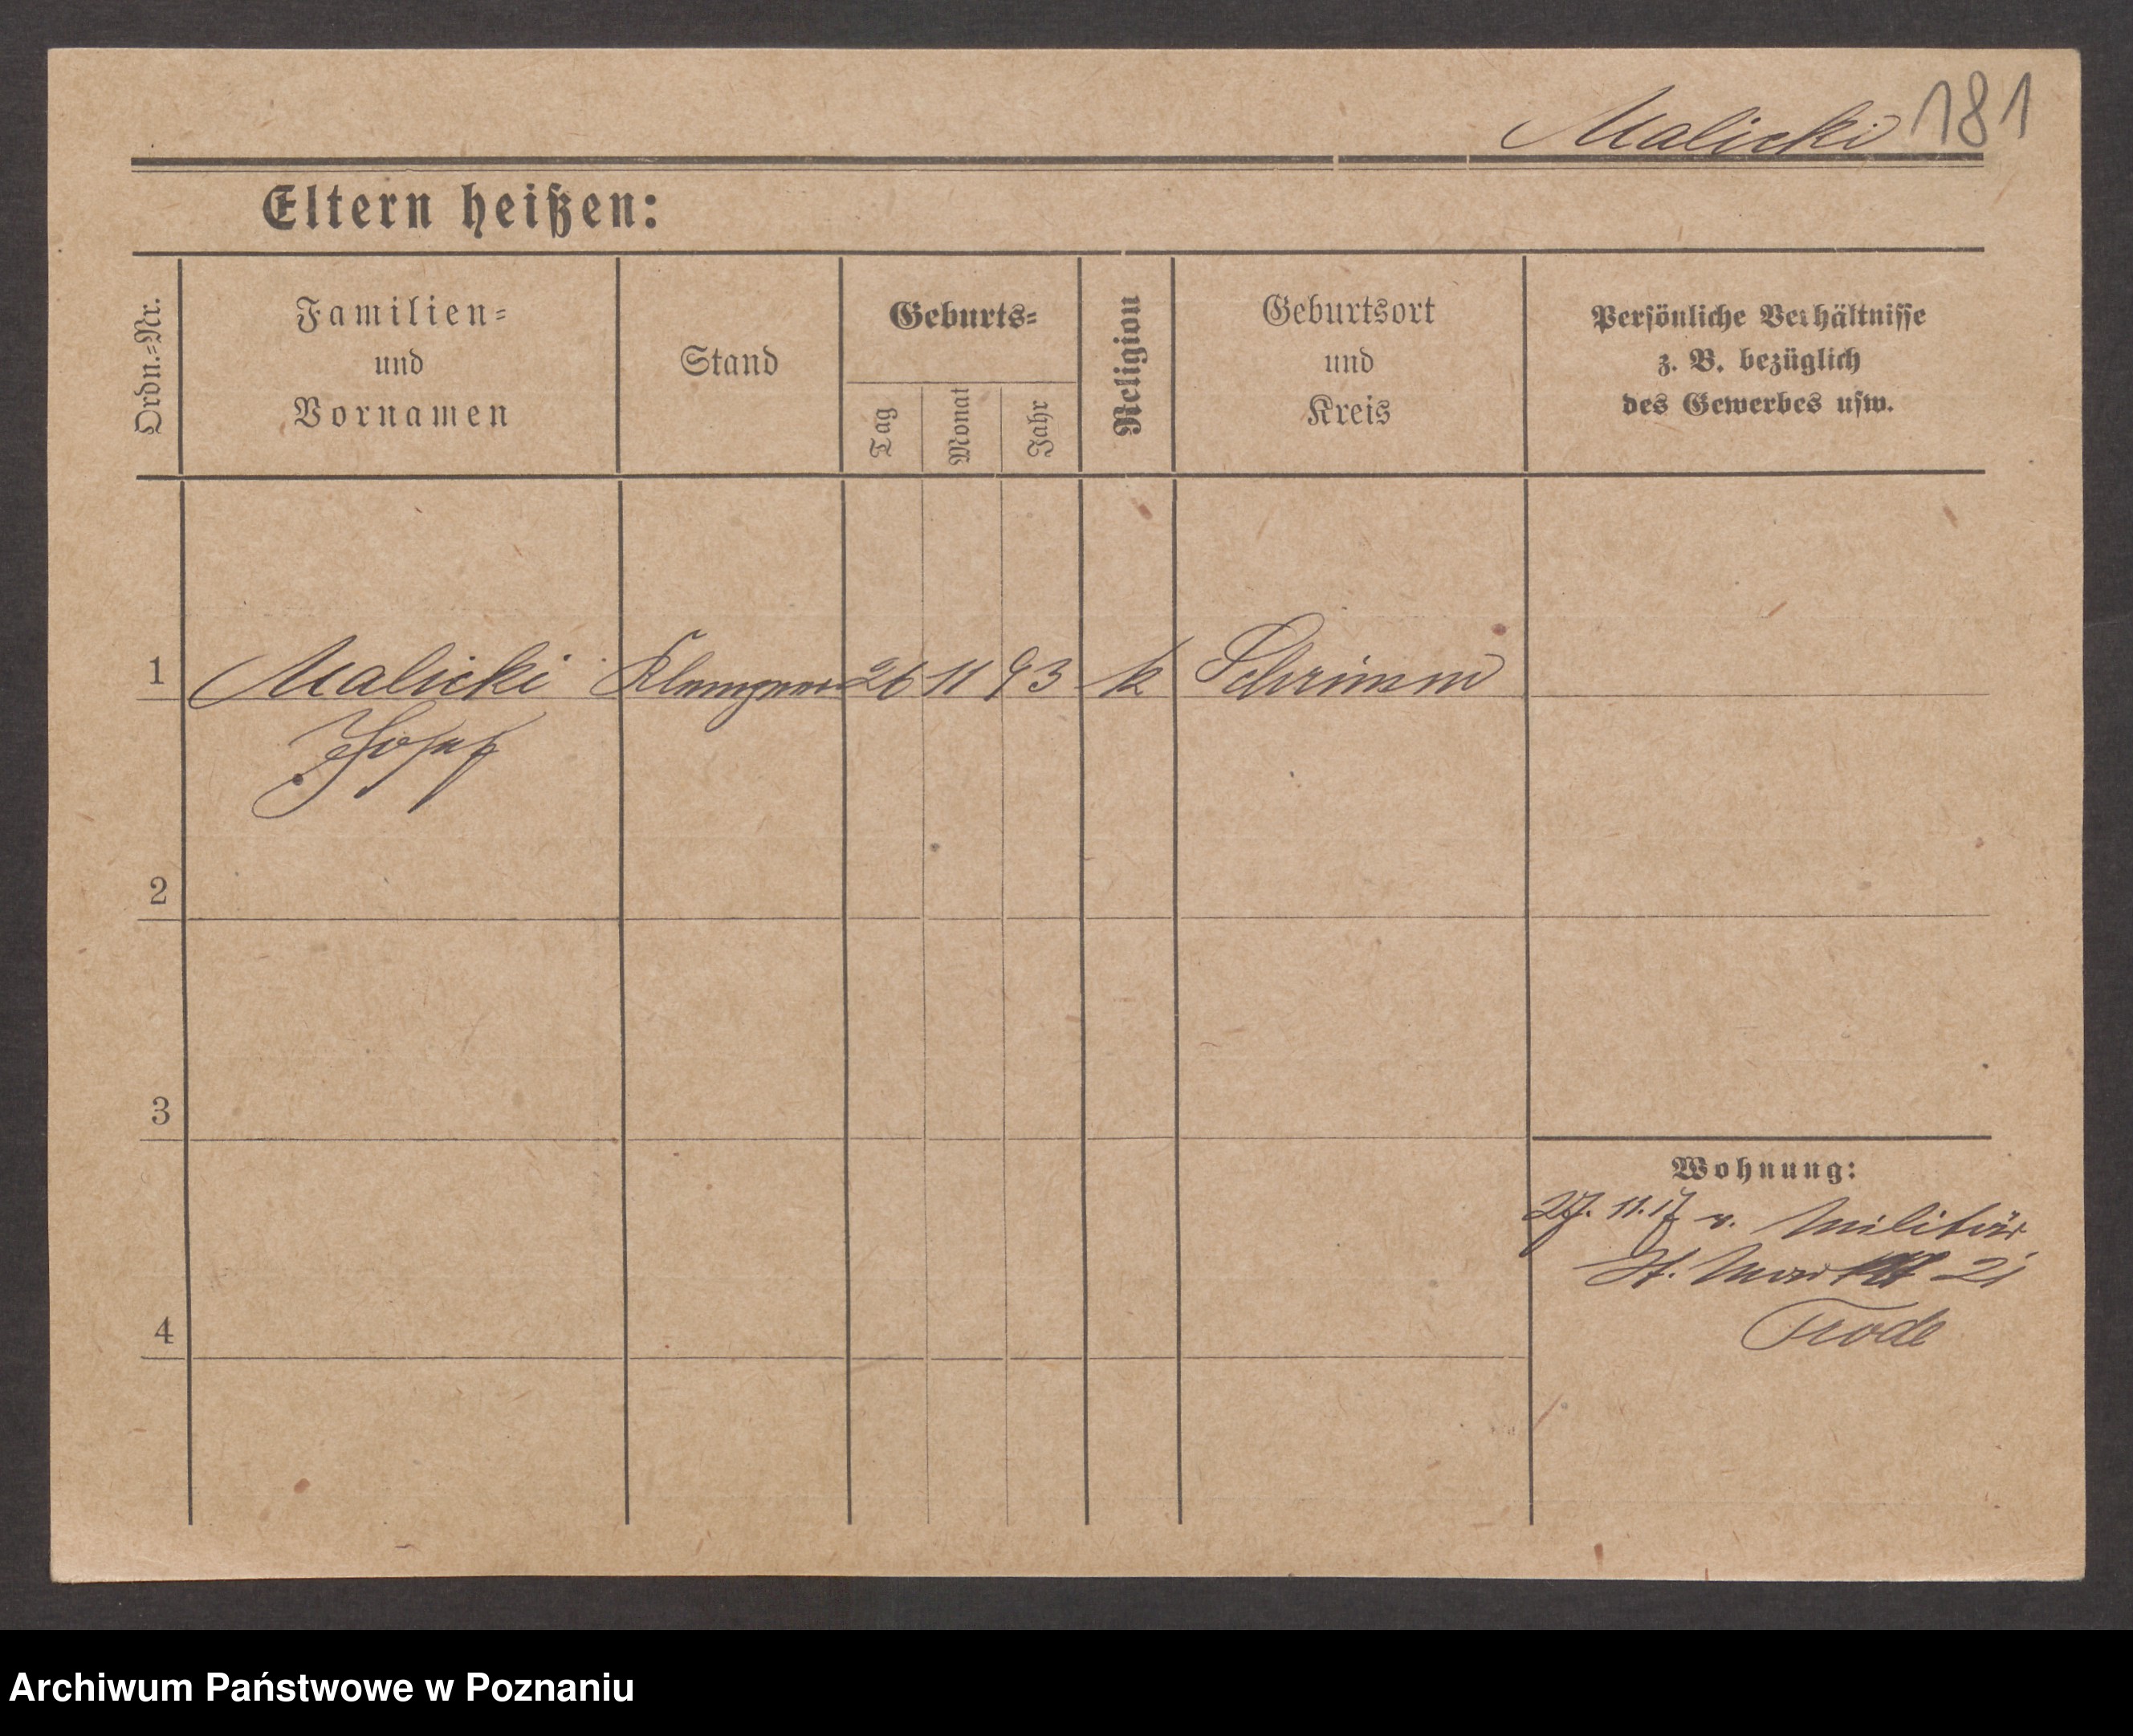 Malicki 181
Eltern heißen:
Ordn.=Nr.
Familien=
und
Vornamen
Stand
Geburts=
Tag
Monat
Jahr
Religion
Geburtsort
und
Kreis
Persönliche Verhältnisse
z. B. bezüglich
des Gewerbes usw.
1 Malicki Klempner 26 11 93 k Schrimm
Josef
2
3
4
Wohnung:
27. 11. 17 v. Militär
St. Martin 21
Archiwum Państwowe w Poznaniu